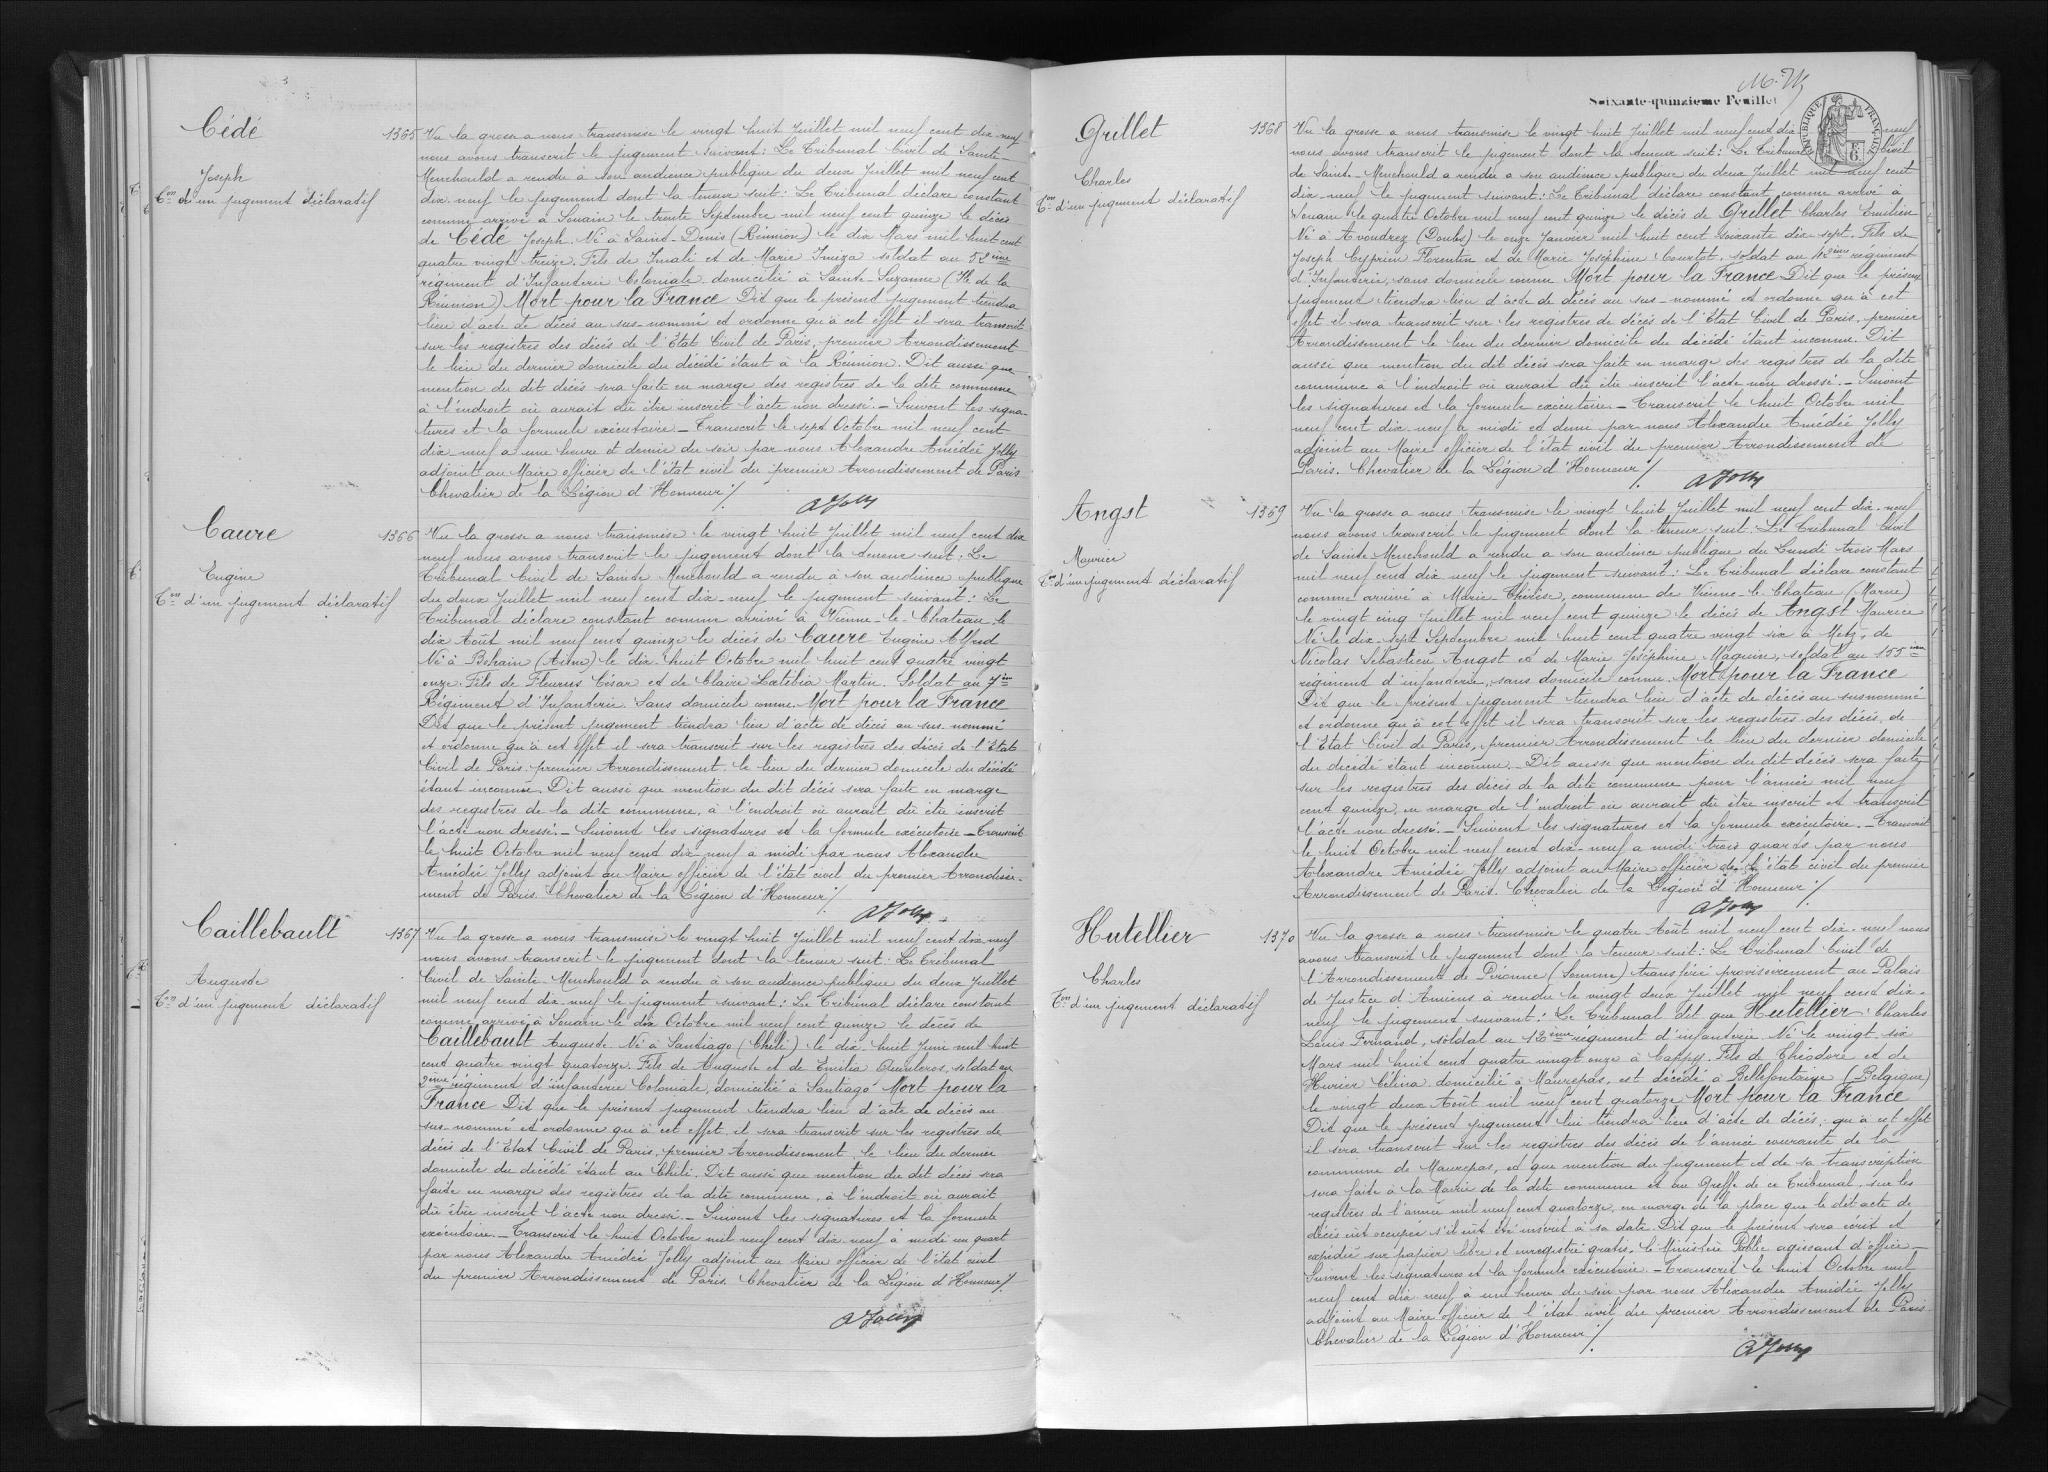 Cédé
Joseph
Con d'un jugement déclaratif
1365
Vu la grosse a nous transmise le vingt huit Juillet mil neuf cent dix neuf
nous avons transcrit le jugement suivant: Le Tribunal Civil de Sainte-
Menehould a rendu à son audience publique du deux Juillet mil neuf cent
dix neuf le jugement dont la teneur suit: Le Tribunal déclare constant
comme arrivé à Souain le trente Septembre mil neuf cent quinze le décès
de Cédé Joseph. Né à Saint-Denis (Réunion) le dix Mars mil huit cent
quatre vingt treize. Fils de Imali et de Marie Imiza soldat au 52ème
régiment d'Infanterie Coloniale domicilié à Sainte Suzanne (Ile de la
Réunion) Mort pour la France Dit que le présent jugement tiendra
lieu d'acte de décès au sus-nommé et ordonne qu'à cet effet il sera transcrit
sur les registres des décès de l'Etat Civil de Paris, premier Arrondissement
le lieu du dernier domicile du décédé étant à la Réunion. Dit aussi que
mention du dit décès sera faite en marge des registres de la dite commune
à l'endroit où aurait dû être inscrit l'acte non dressé. - Suivent les signa-
tures et la formule exécutoire - Transcrit le sept Octobre mil neuf cent
dix neuf a une heure et demie du soir par nous Alexandre Amédée Jolly
adjoint au Maire officier de l'état civil du premier Arrondissement de Paris
Chevalier de la Légion d'Honneur /.
AJolly
Caure
Eugène
Con d'un jugement déclaratif
1366
Vu la grosse a nous transmise le vingt huit Juillet mil neuf cent dix
neuf nous avons transcrit le jugement dont la teneur suit: Le
Tribunal Civil de Sainte Menehould a rendu à son audience publique
du deux Juillet mil neuf cent dix-neuf le jugement suivant: Le
Tribunal déclare constant comme arrivé à Vienne-le-Chateau le
dix Août mil neuf cent quinze le décès de Caure Eugène Alfred
Né à Bohain (Aisne) le dix-huit Octobre mil huit cent quatre vingt
onze. Fils de Fleurus César et de Claire Lætitia Martin. Soldat au 7ème
Régiment d'Infanterie. Sans domicile connu. Mort pour la France
Dit que le présent jugement tiendra lieu d'acte de décès au sus-nommé
et ordonne qu'à cet effet il sera transcrit sur les registres des décès de l'Etat
Civil de Paris premier Arrondissement. le lieu du dernier domicile du décédé
étant inconnu. Dit aussi que mention du dit décès sera faite en marge
des registres de la dite commune, à l'endroit où aurait dû être inscrit
l'acte non dressé. - Suivent les signatures et la formule exécutoire - Transcrit
le huit Octobre mil neuf cent dix neuf a midi par nous Alexandre
Amédée Jolly adjoint au Maire officier de l'état civil du premier Arrondisse-
ment de Paris. Chevalier de la Légion d'Honneur /.
AJolly
Caillebault
Auguste
Con d'un jugement déclaratif
1367
Vu la grosse a nous transmise le vingt huit Juillet mil neuf cent dix neuf
nous avons transcrit le jugement dont la teneur suit: Le Tribunal
Civil de Sainte Menehould a rendu à son audience publique du deux Juillet
mil neuf cent dix-neuf le jugement suivant: Le Tribunal déclare constant
comme arrivé à Souain le dix Octobre mil neuf cent quinze le décès de
Caillebault Auguste. Né à Santiago (Chili) le dix-huit Juin mil huit
cent quatre vingt quatorze. Fils de Auguste et de Emilia Quinteros, soldat au
2ème régiment d'infanterie Coloniale, domicilié à Santiago Mort pour la
France Dit que le présent jugement tiendra lieu d'acte de décès au
sus-nommé et ordonne qu'à cet effet il sera transcrit sur les registres de
décès de l'Etat Civil de Paris, premier Arrondissement, le lieu du dernier
domicile du décédé étant au Chili. Dit aussi que mention du dit décès sera
faite en marge des registres de la dite commune, à l'endroit où aurait
dû être inscrit l'acte non dressé. - Suivent les signatures et la formule
exécutoire. - Transcrit le huit Octobre mil neuf cent dix neuf a midi un quart
par nous Alexandre Amédée Jolly adjoint au Maire officier de l'état civil
du premier Arrondissement de Paris Chevalier de la Légion d'Honneur /.
AJolly
Soixante-quinzieme Feuillet
RÉPUBLIQUE FRANÇAISE
Grillet
Charles
Con d'un jugement déclaratif
1368
Vu la grosse a nous transmise le vingt huit Juillet mil neuf cent dix neuf
nous avons transcrit le jugement dont la teneur suit: Le Tribunal Civil
de Sainte-Menehould a rendu a son audience publique du deux Juillet mil neuf cent
dix-neuf le jugement suivant: Le Tribunal déclare constant comme arrivé à
Souain le quatre Octobre mil neuf cent quinze le décès de Grillet Charles Emilien
Né à Avoudrey (Doubs) le onze Janvier mil huit cent soixante dix sept. Fils de
Joseph Cyprien Florentin et de Marie Joséphine Courtot, soldat au 42ème régiment
d'Infanterie, sans domicile connu Mort pour la France Dit que le présent
jugement tiendra lieu d'acte de décès au sus-nommé et ordonne qu'à cet
effet il sera transcrit sur les registres de décès de l'Etat Civil de Paris, premier
Arrondissement le lieu du dernier domicile du décédé étant inconnu. Dit
aussi que mention du dit décès sera faite en marge des registres de la dite
commune à l'endroit où aurait dû être inscrit l'acte non dressé. - Suivent
les signatures et la formule exécutoire - Transcrit le huit Octobre mil
neuf cent dix neuf a midi et demi par nous Alexandre Amédée Jolly
adjoint au Maire officier de l'état civil du premier Arrondissement de
Paris. Chevalier de la Légion d'Honneur /.
AJolly
Angst
Maurice
Con d'un jugement déclaratif
1369
Vu la grosse a nous transmise le vingt huit Juillet mil neuf cent dix-neuf
nous avons transcrit le jugement dont la teneur suit: Le Tribunal Civil
de Sainte Menehould a rendu a son audience publique du Lundi trois Mars
mil neuf cent dix neuf le jugement suivant: Le Tribunal déclare constant
comme arrivé à Marie Thérèse, commune de Vienne-le-Chateau (Marne)
le vingt cinq Juillet mil neuf cent quinze le décès de Angst Maurice
Né le dix-sept Septembre mil huit cent quatre vingt six à Metz, de
Nicolas Sébastien Angst et de Marie Joséphine Maguin, soldat au 155ème
régiment d'infanterie, sans domicile connu. Mort pour la France
Dit que le présent jugement tiendra lieu d'acte de décès au susnommé
et ordonne qu'à cet effet il sera transcrit sur les registres des décès, de
l'Etat Civil de Paris, premier Arrondissement le lieu du dernier domicile
du décédé étant inconnu. - Dit aussi que mention du dit décès sera faite
sur les registres des décès de la dite commune pour l'année mil neuf
cent quinze, en marge de l'endroit où aurait dû être inscrit et transcrit
l'acte non dressé. - Suivent les signatures et la formule exécutoire. - Transcrit
le huit Octobre mil neuf cent dix-neuf a midi trois quarts par nous
Alexandre Amédée Jolly adjoint au Maire officier de l'état civil du premier
Arrondissement de Paris. Chevalier de la Légion d'Honneur /.
AJolly
Hutellier
Charles
Con d'un jugement déclaratif
1370
Vu la grosse a nous transmise le quatre Août mil neuf cent dix-neuf nous
avons transcrit le jugement dont la teneur suit: Le Tribunal Civil de
l'Arrondissement de Péronne (Somme) transféré provisoirement au Palais
de Justice d'Amiens à rendu le vingt deux Juillet mil neuf cent dix-
neuf le jugement suivant: Le Tribunal dit que Hutellier Charles
Louis Fernand, soldat au 12ème régiment d'infanterie. Né le vingt six
Mars mil huit cent quatre vingt onze à Cappy. Fils de Théodore et de
Hurier Célina domicilié à Maurepas, est décédé à Bellefontaine (Belgique)
le vingt deux Août mil neuf cent quatorze Mort pour la France
Dit que le présent jugement lui tiendra lieu d'acte de décès; qu'à cet effet
il sera transcrit sur les registres des décès de l'année courante de la
commune de Maurepas, et que mention du jugement et de sa transcription
sera faite à la Mairie de la dite commune et au Greffe de ce Tribunal, sur les
registres de l'année mil neuf cent quatorze, en marge de la place que le dit acte de
décès eut occupée s'il eût été inscrit à sa date. Dit que le présent sera écrit et
expédié sur papier libre et enregistré gratis, le Ministère Public agissant d'office. -
Suivent les signatures et la formule exécutoire. - Transcrit le huit Octobre mil
neuf cent dix-neuf a une heure du soir par nous Alexandre Amédée Jolly
adjoint au Maire officier de l'état civil du premier Arrondissement de Paris.
Chevalier de la Légion d'Honneur /.
AJolly